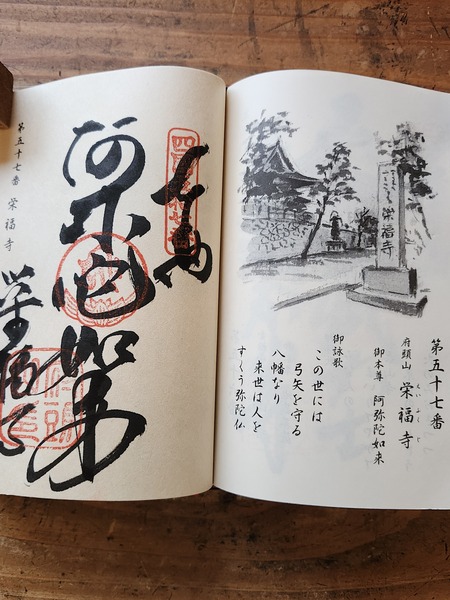 栄福寺
第五十七番
府頭山 栄福寺
御本尊 阿弥陀如来
御詠歌
この世には
弓矢を守る
八幡なり
来世は人を
すくう弥陀仏
奉納
阿弥陀如来
栄福寺
第五十七番 栄福寺